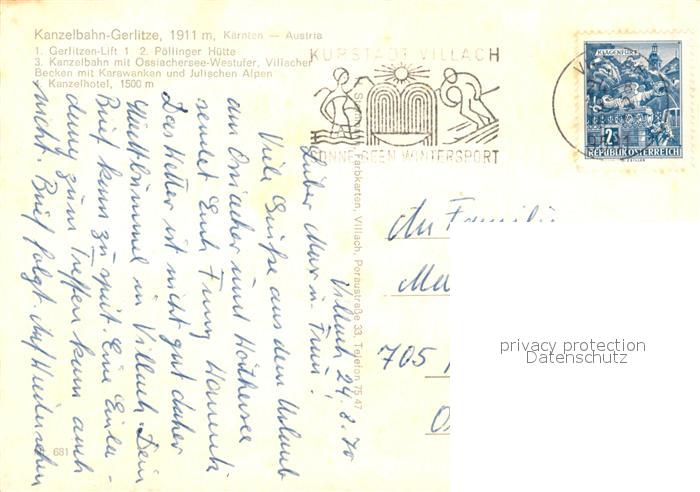 Kanzelbahn-Gerlitze, 1911 m, Kärnten — Austria
1. Gerlitzen-Lift 1 2. Pöllinger Hütte
3. Kanzelbahn mit Ossiachersee-Westufer, Villacher
Becken mit Karawanken und Julischen Alpen
Kanzelhotel, 1500 m
KURSTADT VILLACH
SONNE SEEN WINTERSPORT
KLAGENFURT
2S
REPUBLIK ÖSTERREICH
Farbkarten, Villach, Peraustraße 33, Telefon 75 47
Villach 24.8.70
Lieber
Viele Grüße aus dem Urlaub
am Ossiacher und Wörthersee
sendet Euch
Das Wetter ist nicht gut daher
in Villach. Dein
Brief kam zu spät. Eine Einla-
dung zum Treffen kam auch
nicht. Brief folgt. Auf Wiedersehen
An Familie
705
681
privacy protection
Datenschutz